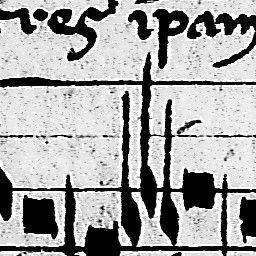 res ipam